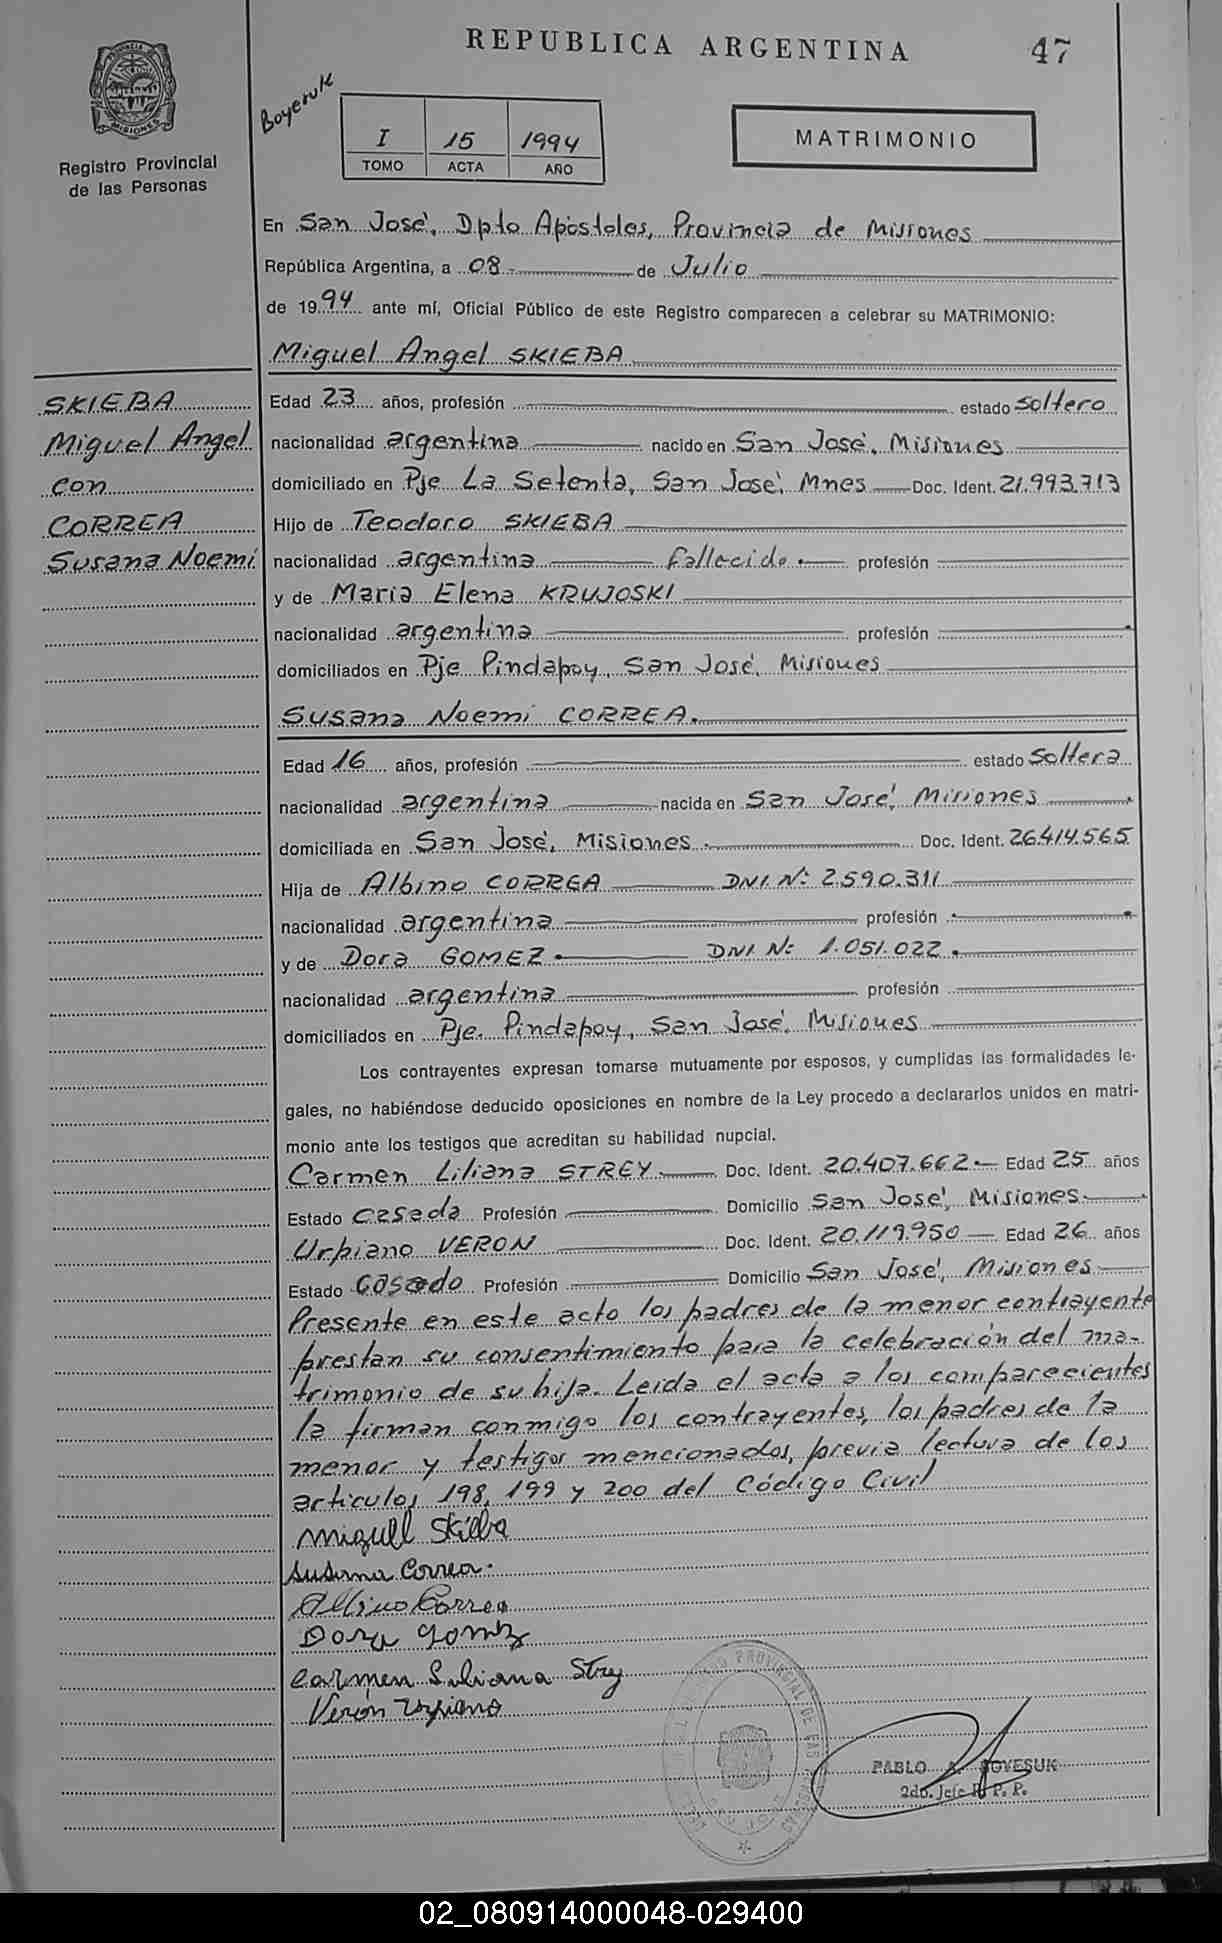 REPUBLICA ARGENTINA
47
PROVINCIA DE
MISIONES
Registro Provincial
de las Personas
I 15 1994
TOMO ACTA AÑO
MATRIMONIO
En San José, Dpto Apóstoles, Provincia de Misiones
República Argentina, a 08 de Julio
de 1994 ante mí, Oficial Público de este Registro comparecen a celebrar su MATRIMONIO:
Miguel Angel SKIEBA
SKIEBA
Miguel Angel
con
CORREA
Susana Noemi
Edad 23 años, profesión estado soltero
nacionalidad argentina nacido en San José, Misiones
domiciliado en Pje La Setenta, San José, Mnes Doc. Ident. 21.993.713
Hijo de Teodoro SKIEBA
nacionalidad argentina fallecido.- profesión
y de Maria Elena KRUJOSKI
nacionalidad argentina profesión
domiciliados en Pje Pindapoy, San José, Misiones
Susana Noemi CORREA.
Edad 16 años, profesión estado soltera
nacionalidad argentina nacida en San José, Misiones
domiciliada en San José, Misiones. Doc. Ident. 26.414.565
Hija de Albino CORREA DNI Nº: 2.590.311
nacionalidad argentina profesión
y de Dora GOMEZ. DNI Nº: 1.051.022.
nacionalidad argentina profesión
domiciliados en Pje. Pindapoy, San José, Misiones
Los contrayentes expresan tomarse mutuamente por esposos, y cumplidas las formalidades le-
gales, no habiéndose deducido oposiciones en nombre de la Ley procedo a declararlos unidos en matri-
monio ante los testigos que acreditan su habilidad nupcial.
Carmen Liliana STREY. Doc. Ident. 20.407.662.- Edad 25 años
Estado casada Profesión Domicilio San José, Misiones.
Urbiano VERON Doc. Ident. 20.119.950 Edad 26 años
Estado Casado Profesión Domicilio San José, Misiones
Presente en este acto los padres de la menor contrayente
prestan su consentimiento para la celebración del ma-
trimonio de su hija. Leida el acta a los comparecientes
la firman conmigo los contrayentes, los padres de la
menor y testigos mencionados, previa lectura de los
articulos 198, 199 y 200 del Código Civil
Miguel Skieba
Susana Correa.
Albino Correa
Dora Gomez
Carmen Liliana Strey
Verón Urbiano
PABLO A. BOYESUK
2do. Jefe R. P. P.
02_080914000048-029400